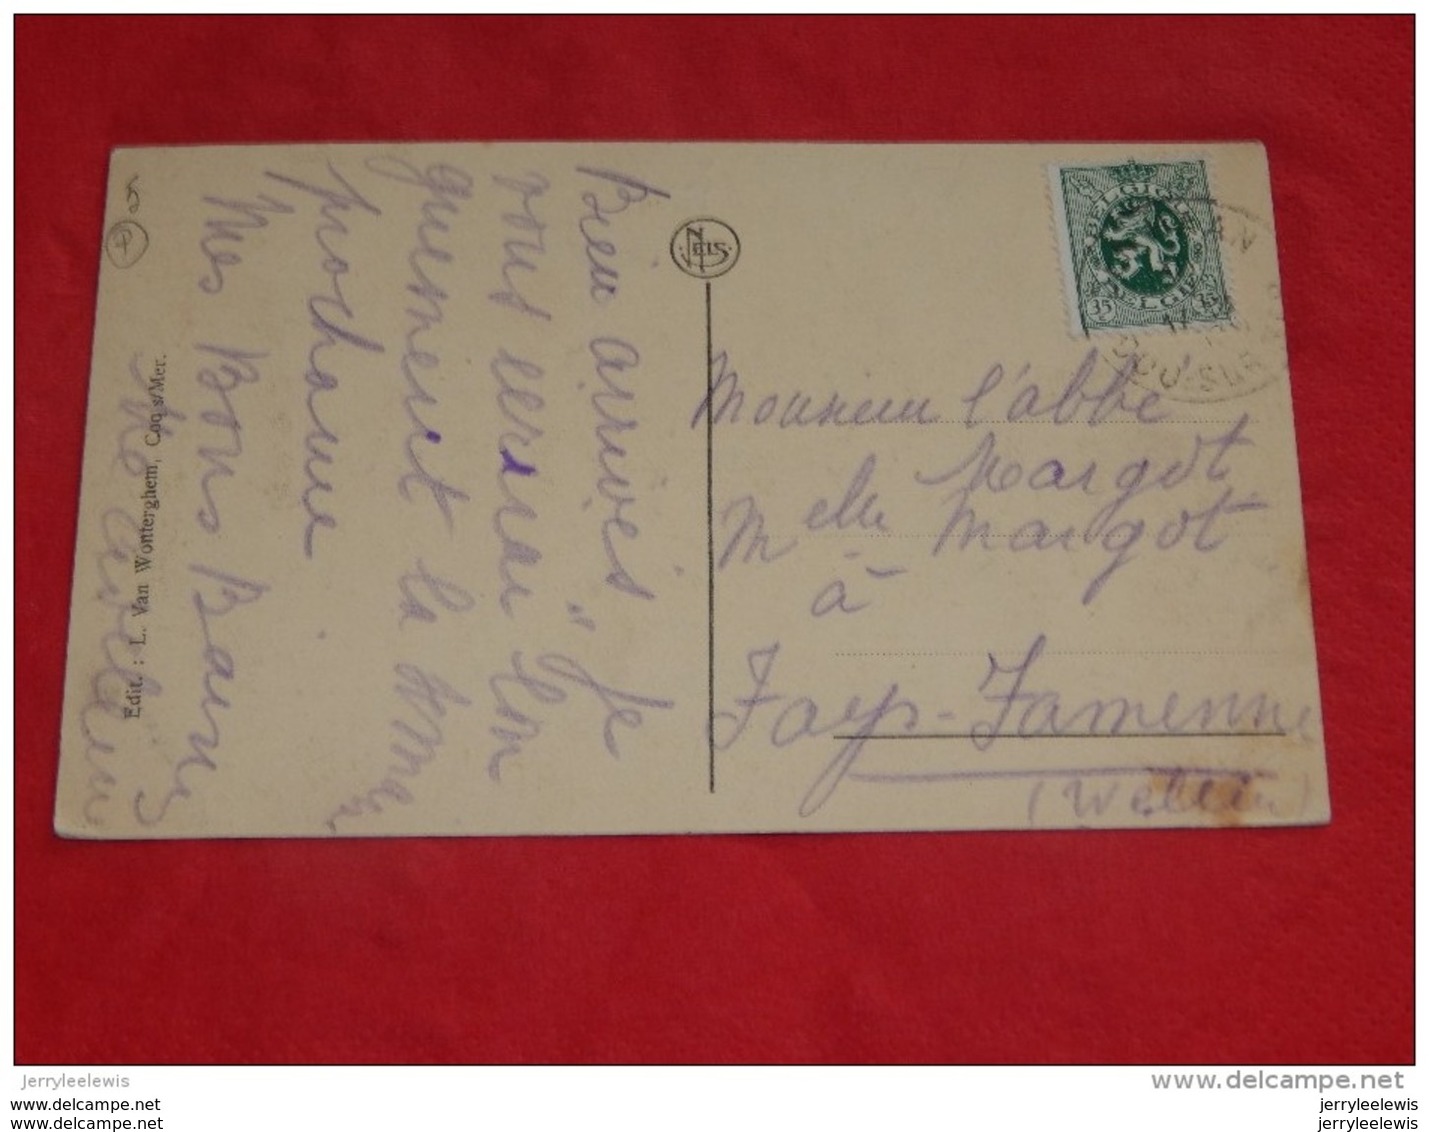 Bien arrivés
" Je
vous écrirai lon
guement la semai
prochaine
Mes Bons Baisers
Edit. : L. Van Wonterghem, Coq s/Mer.
NELS
BELGIQUE
BELGIE
35 35
COQ-SUR
Monsieur l'abbé
Margot
Melle Margot
à
Fays-Famenne
(Wellin)
jerryleelewis
www.delcampe.net
www.delcampe.net
www.delcampe.net
jerryleelewis
jerryleelewis